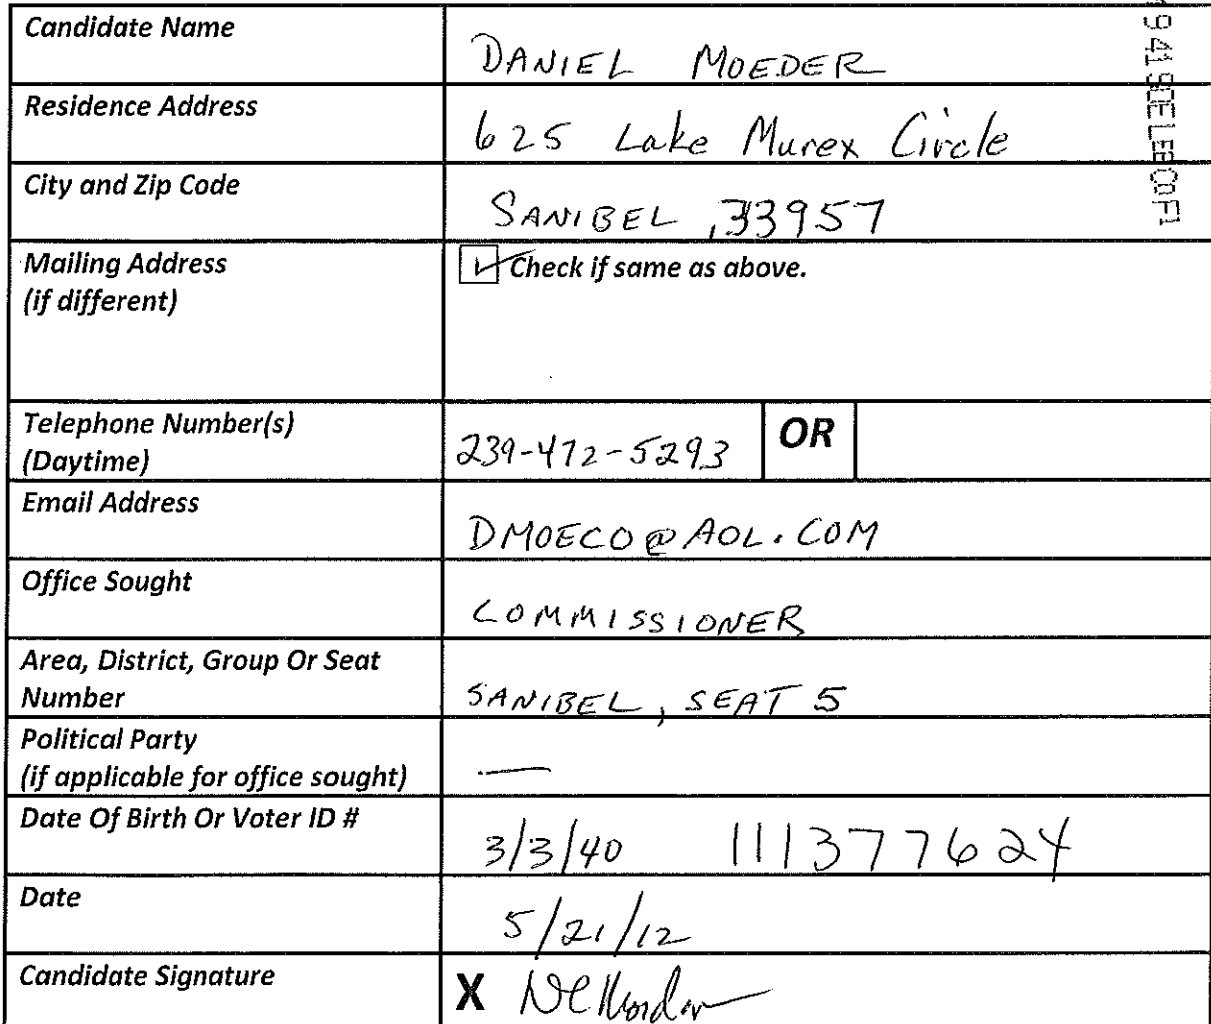 Candidate Name
DANIEL MOEDER
Residence Address
625 Lake Murex Circle
City and Zip Code
SANIBEL, 33957
Mailing Address
(if different)
Check if same as above.
Telephone Number(s)
(Daytime)
239-472-5293
OR
Email Address
DMOECO@AOL.COM
Office Sought
COMMISSIONER
Area, District, Group Or Seat
Number
SANIBEL, SEAT 5
Political Party
(if applicable for office sought)
—
Date Of Birth Or Voter ID #
3/3/40 111377624
Date
5/21/12
Candidate Signature
X